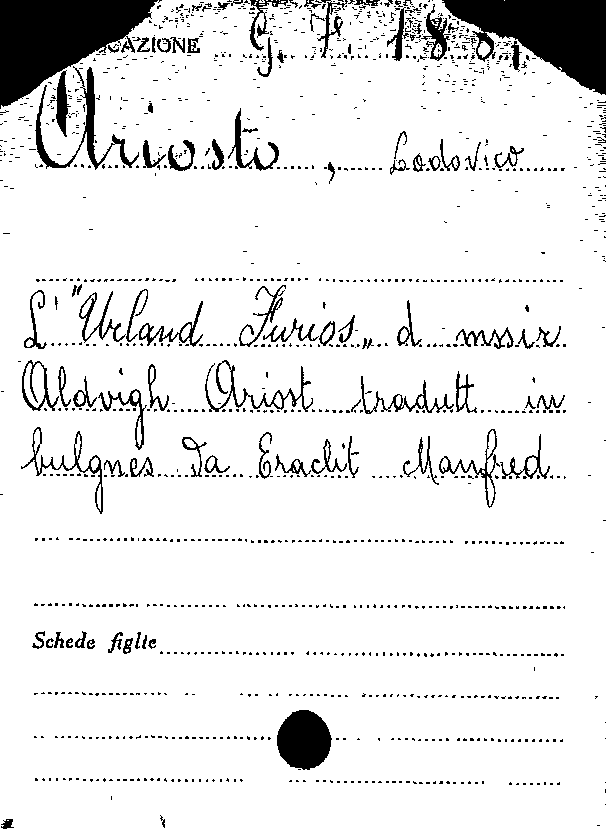 CAZIONE G. 7. 1801
Ariosto, Lodovico
L' "Urland Furios„ d mssir
Aldvigh Ariost tradutt in
bulgnes da Eraclit Manfred
Schede figlie